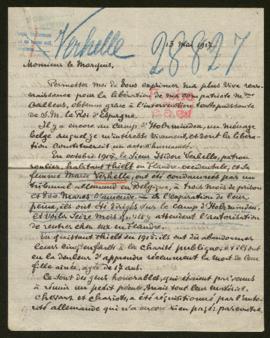 Verhelle
28827
13 mai 1917
Monsieur le Marquis,
Permettez moi de vous exprimer ma plus vive recon-
naissance pour la libération de ma compatriote Mme
obtenue grâce à l'intervention toute puissante
de S.M. le Roi d'Espagne.
Il y a encore au Camp d'Holzminden, un ménage
belge auquel je m'intéresse et dont la libéra-
tion constituerait un acte d'humanité.
En octobre 1915, le sieur Isidore Verhelle, patron
routier, habitant Thielt en Flandre occidentale, et sa
femme Marie Verhelle, ont été condamnés par un
tribunal allemand en Belgique, à trois mois de prison
et 800 Marks d'amende. A l'expiration de leur
peine, ils ont été dirigés sur le camp d'Holzminden,
et voilà seize mois qu'ils y attendent l'autorisation
de rentrer chez eux en Flandre.
En quittant Thielt en 1915, ils ont dû abandonner
leurs cinq enfants à la charité publique, et ils ont
eu la douleur d'apprendre récemment la mort de leur
fille aînée, âgée de 17 ans.
Ce sont des gens honorables, qui étaient parvenus
à réunir un petit pécule. Mais tout leur matériel,
chevaux et chariots, a été réquisitionné par l'auto-
rité allemande qui n'a encore rien payé par contre.